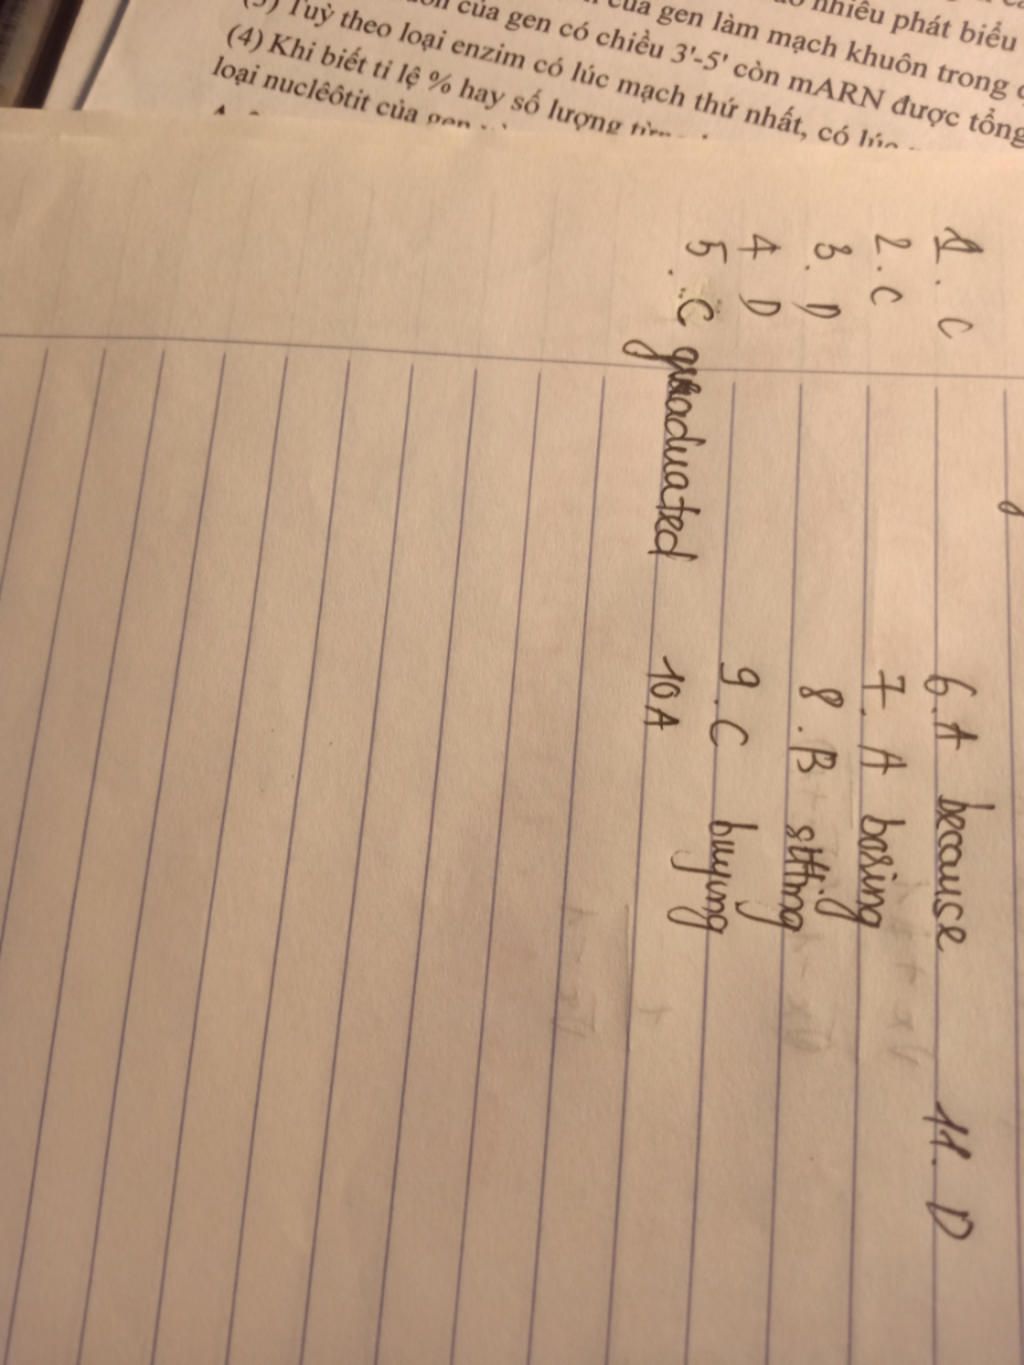 nhiêu phát biểu
của gen làm mạch khuôn trong
của gen có chiều 3'-5' còn mARN được tổng
(3) Tuỳ theo loại enzim có lúc mạch thứ nhất, có lúc
(4) Khi biết tỉ lệ % hay số lượng từng
loại nuclêôtit của gen
1. C
2. C
3. D
4 D
5. C graduated
6. A because
7. A boring
8. B sitting
9. C buying
10 A
11. D